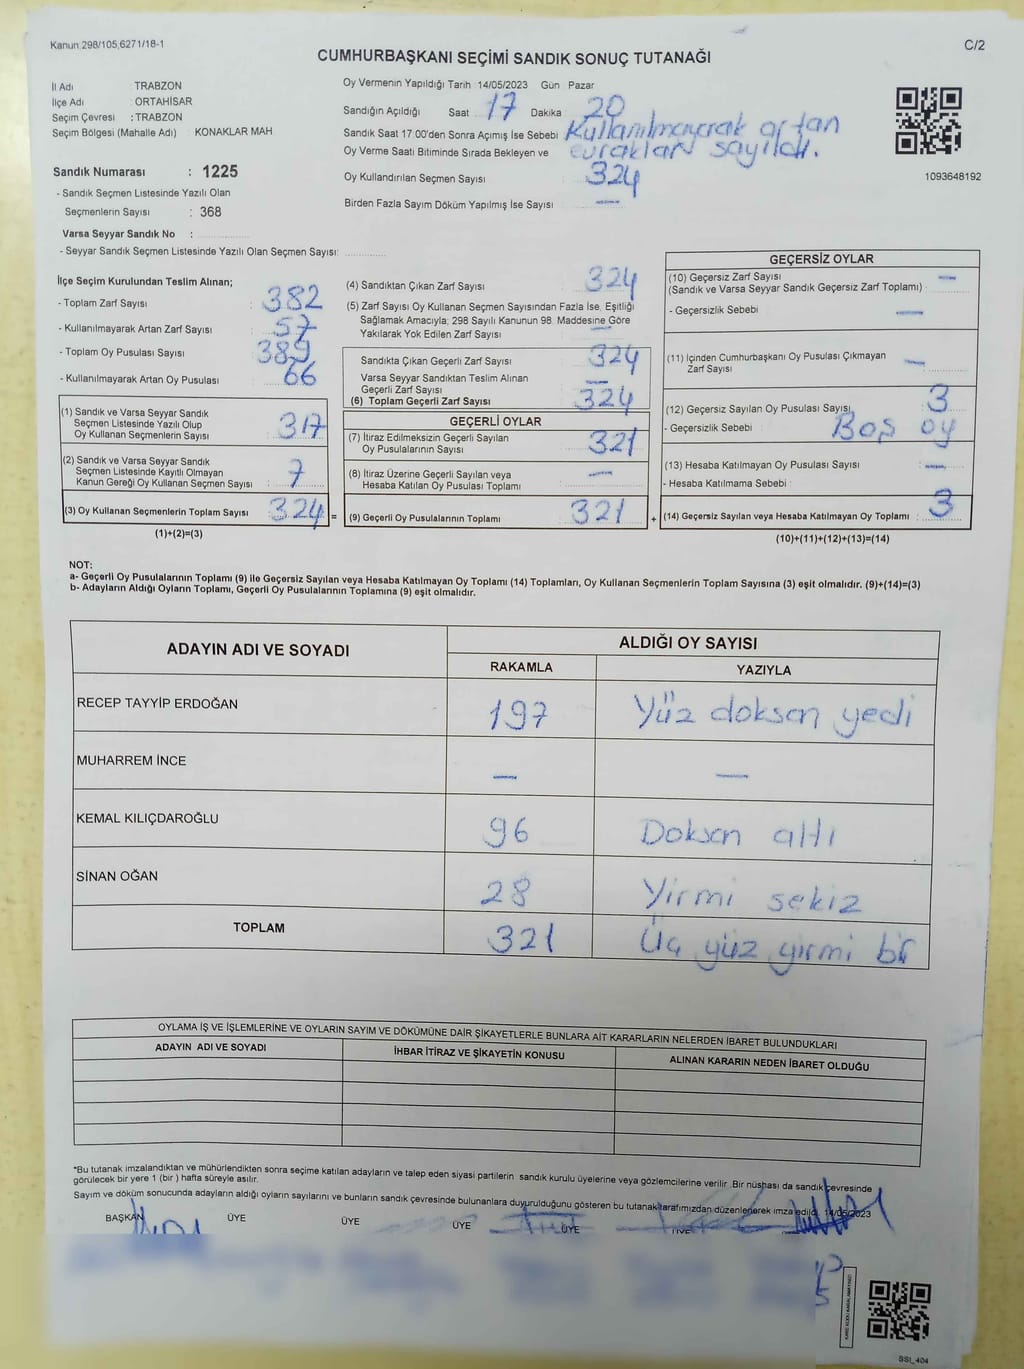 Kanun:298/105,6271/18-1
C/2
CUMHURBAŞKANI SEÇİMİ SANDIK SONUÇ TUTANAĞI
İl Adı TRABZON
İlçe Adı : ORTAHİSAR
Seçim Çevresi : TRABZON
Seçim Bölgesi (Mahalle Adı) : KONAKLAR MAH
Sandık Numarası : 1225
- Sandık Seçmen Listesinde Yazılı Olan
Seçmenlerin Sayısı : 368
Varsa Seyyar Sandık No :
- Seyyar Sandık Seçmen Listesinde Yazılı Olan Seçmen Sayısı:
Oy Vermenin Yapıldığı Tarih : 14/05/2023 Gün Pazar
Sandığın Açıldığı Saat 17 Dakika 20
Sandık Saat 17:00'den Sonra Açımış İse Sebebi Kullanılmayarak artan
evrakları sayıldı.
Oy Verme Saati Bitiminde Sırada Bekleyen ve
Oy Kullandırılan Seçmen Sayısı 324
Birden Fazla Sayım Döküm Yapılmış İse Sayısı —
1093648192
İlçe Seçim Kurulundan Teslim Alınan;
- Toplam Zarf Sayısı : 382
- Kullanılmayarak Artan Zarf Sayısı : 57
- Toplam Oy Pusulası Sayısı : 389
- Kullanılmayarak Artan Oy Pusulası : 66
(1) Sandık ve Varsa Seyyar Sandık
Seçmen Listesinde Yazılı Olup
Oy Kullanan Seçmenlerin Sayısı : 317
(2) Sandık ve Varsa Seyyar Sandık
Seçmen Listesinde Kayıtlı Olmayan
Kanun Gereği Oy Kullanan Seçmen Sayısı : 7
(3) Oy Kullanan Seçmenlerin Toplam Sayısı : 324 =
(1)+(2)=(3)
(4) Sandıktan Çıkan Zarf Sayısı 324
(5) Zarf Sayısı Oy Kullanan Seçmen Sayısından Fazla İse, Eşitliği
Sağlamak Amacıyla, 298 Sayılı Kanunun 98. Maddesine Göre
Yakılarak Yok Edilen Zarf Sayısı —
Sandıkta Çıkan Geçerli Zarf Sayısı 324
Varsa Seyyar Sandıktan Teslim Alınan
Geçerli Zarf Sayısı —
(6) Toplam Geçerli Zarf Sayısı 324
GEÇERLİ OYLAR
(7) İtiraz Edilmeksizin Geçerli Sayılan
Oy Pusulalarının Sayısı 321
(8) İtiraz Üzerine Geçerli Sayılan veya
Hesaba Katılan Oy Pusulası Toplamı —
(9) Geçerli Oy Pusulalarının Toplamı 321 +
GEÇERSİZ OYLAR
(10) Geçersiz Zarf Sayısı —
(Sandık ve Varsa Seyyar Sandık Geçersiz Zarf Toplamı)
- Geçersizlik Sebebi —
(11) İçinden Cumhurbaşkanı Oy Pusulası Çıkmayan
Zarf Sayısı —
(12) Geçersiz Sayılan Oy Pusulası Sayısı 3
- Geçersizlik Sebebi : Boş oy
(13) Hesaba Katılmayan Oy Pusulası Sayısı —
- Hesaba Katılmama Sebebi :
(14) Geçersiz Sayılan veya Hesaba Katılmayan Oy Toplamı : 3
(10)+(11)+(12)+(13)=(14)
NOT:
a- Geçerli Oy Pusulalarının Toplamı (9) ile Geçersiz Sayılan veya Hesaba Katılmayan Oy Toplamı (14) Toplamları, Oy Kullanan Seçmenlerin Toplam Sayısına (3) eşit olmalıdır. (9)+(14)=(3)
b- Adayların Aldığı Oyların Toplamı, Geçerli Oy Pusulalarının Toplamına (9) eşit olmalıdır.
ADAYIN ADI VE SOYADI ALDIĞI OY SAYISI
RAKAMLA YAZIYLA
RECEP TAYYİP ERDOĞAN 197 Yüz doksan yedi
MUHARREM İNCE — —
KEMAL KILIÇDAROĞLU 96 Doksan altı
SİNAN OĞAN 28 Yirmi sekiz
TOPLAM 321 Üç yüz yirmi bir
OYLAMA İŞ VE İŞLEMLERİNE VE OYLARIN SAYIM VE DÖKÜMÜNE DAİR ŞİKAYETLERLE BUNLARA AİT KARARLARIN NELERDEN İBARET BULUNDUKLARI
ADAYIN ADI VE SOYADI İHBAR İTİRAZ VE ŞİKAYETİN KONUSU ALINAN KARARIN NEDEN İBARET OLDUĞU
*Bu tutanak imzalandıktan ve mühürlendikten sonra seçime katılan adayların ve talep eden siyasi partilerin sandık kurulu üyelerine veya gözlemcilerine verilir .Bir nüshası da sandık çevresinde
görülecek bir yere 1 (bir ) hafta süreyle asılır.
Sayım ve döküm sonucunda adayların aldığı oyların sayılarını ve bunların sandık çevresinde bulunanlara duyurulduğunu gösteren bu tutanak tarafımızdan düzenlenerek imza edildi. 14/05/2023
BAŞKAN ÜYE ÜYE ÜYE ÜYE ÜYE
SSI_404